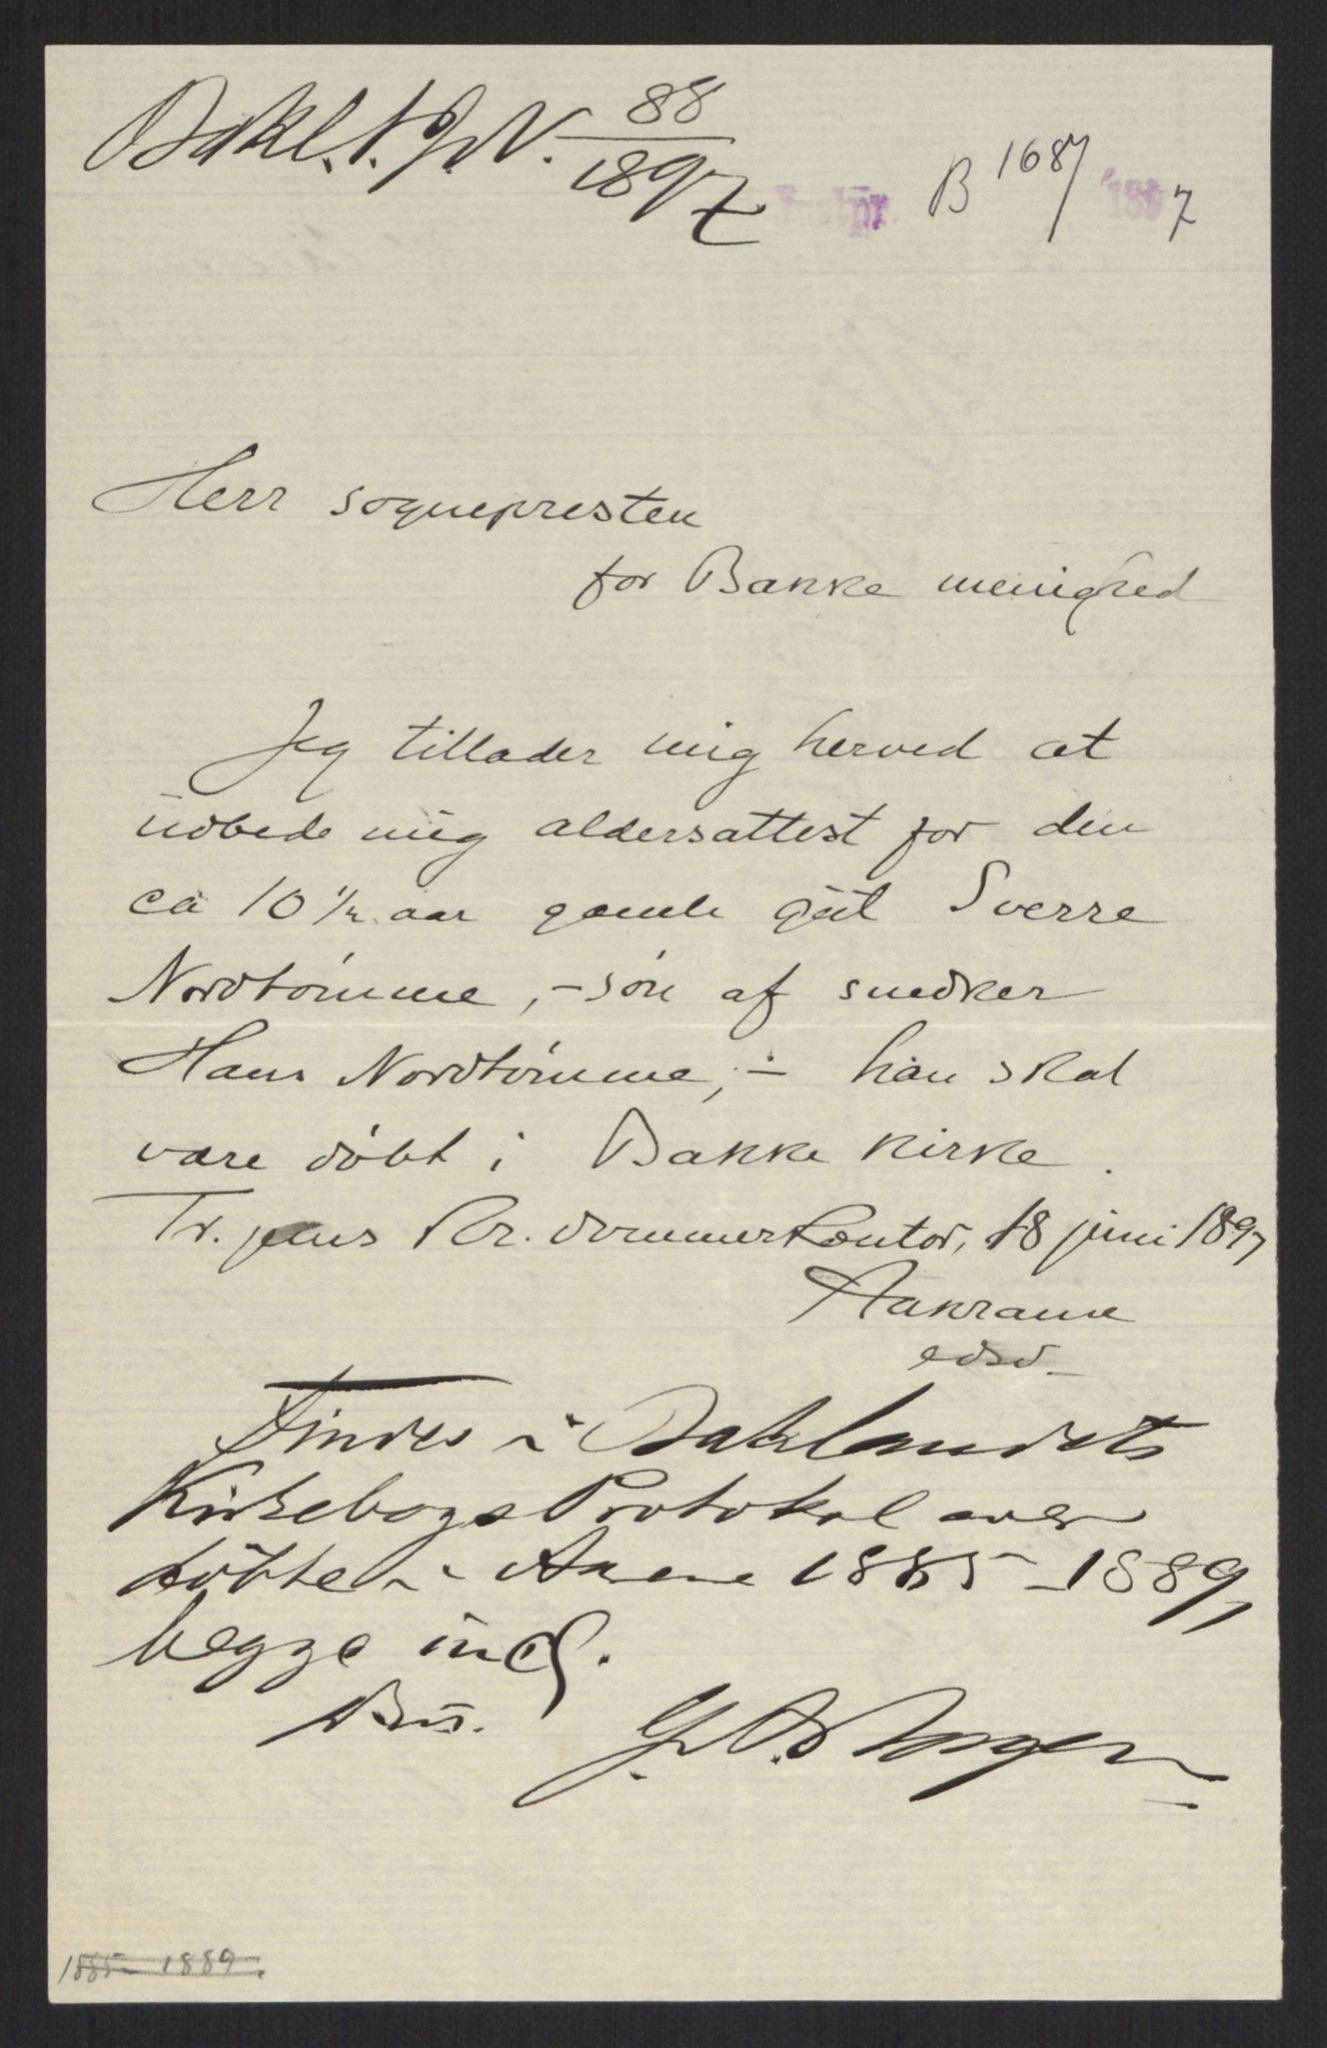 Bakl. J. N. 88/1897
B 1687 1897
Herr sognepresten
for Bakke menighed
Jeg tillader mig herved at
udbede mig aldersattest for den
ca 10 1/2 aar gamle gut Sverre
Nordtømme, - søn af snedker
Hans Nordtømme, - han skal
være døbt i Bakke kirke.
Tr.hjems kr. dommerkontor, 18 juni 1897
Aakrann
edsv.
Findes i Baklandets
Kirkebogs Protokol over
døbte i Aarene 1885-1889,
begge incl.
1885-1889.